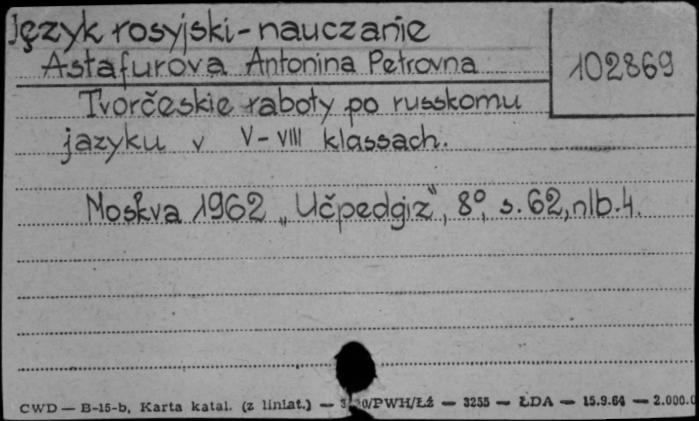 Język rosyjski - nauczanie
Astafurova Antonina Petrovna
102869
Tvorčeskie raboty po russkomu
jazyku v V-VIII klassach.
Moskva 1962 „Učpedgiz", 8°, s. 62, nlb. 4.
CWD — B-15-b, Karta katal. (z liniat.) — /PWH/Łź — 3255 — ŁDA — 15.9.64 — 2.000.0